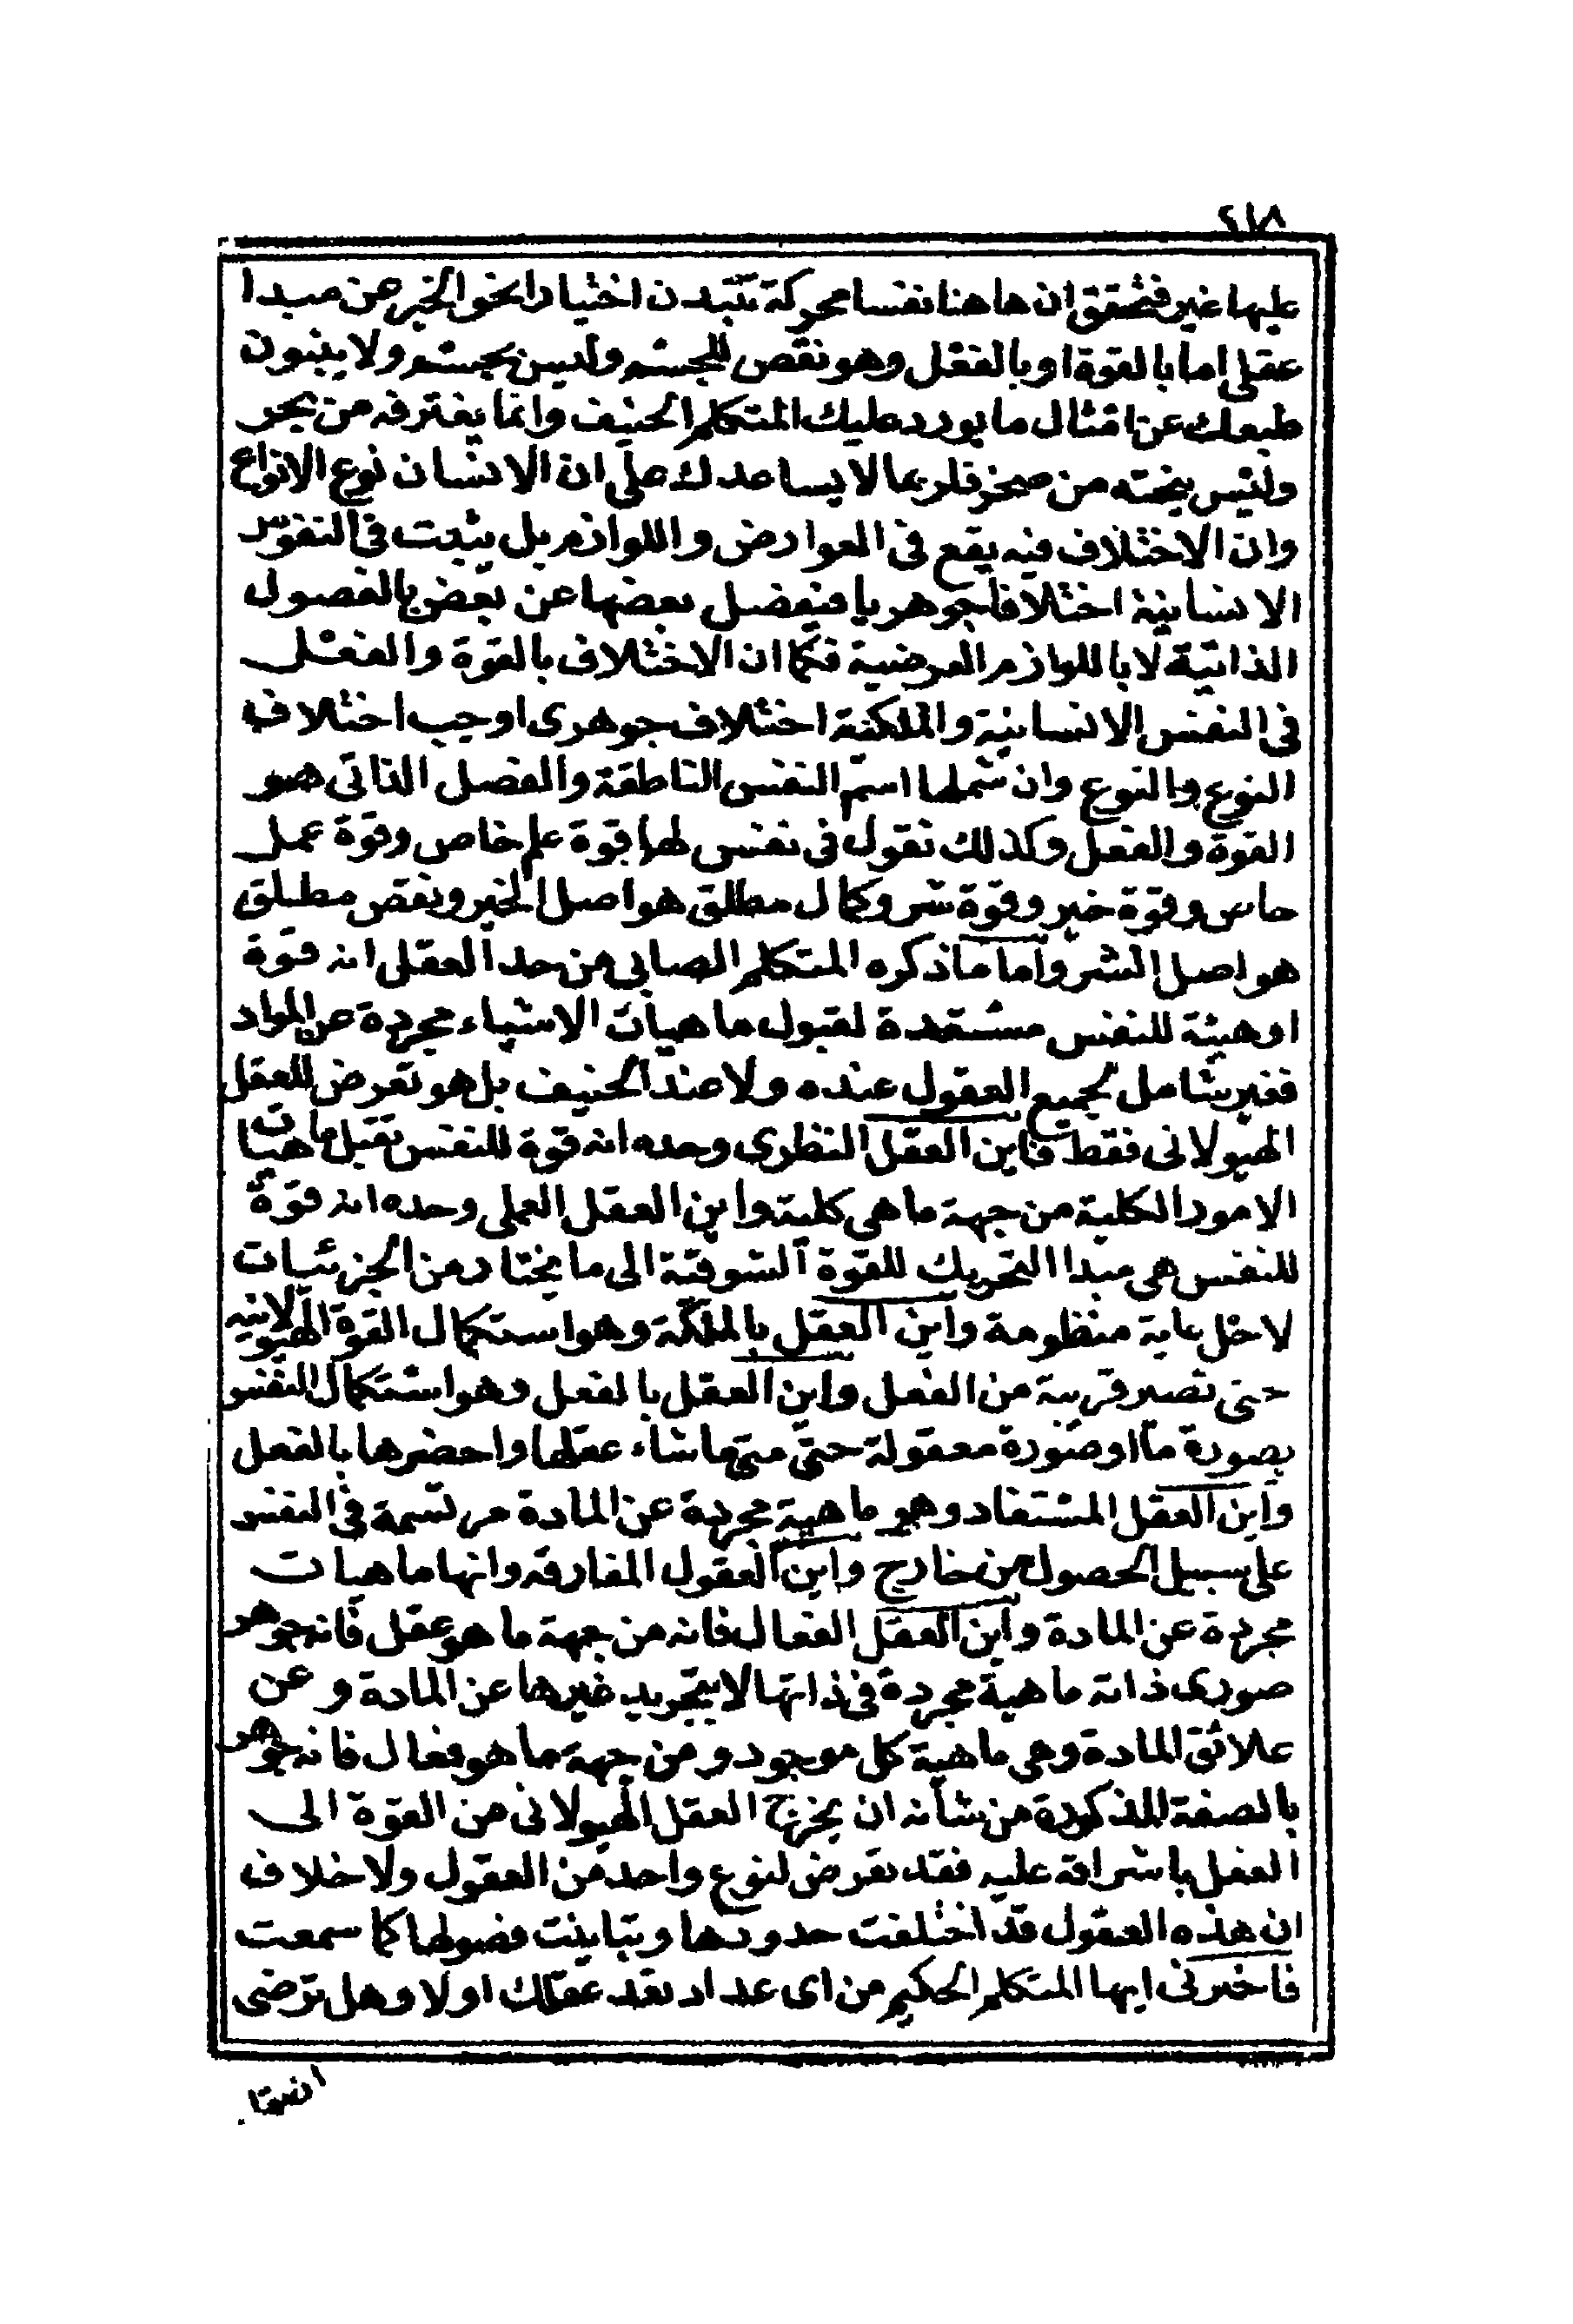 ٢١٨
عليها غير فتحقق ان هاهنا نفسا محركة للبدن اختيارا نحو الخير عن مبدا
عقلى اما بالقوة او بالفعل وهو نقص للجسم وليس بجسم ولا ينبون
طبعك عن امثال ما يورده عليك المتكلم الحنيف وانما يغترفه من بحر
وليس ينحته من صخر فلربما لا يساعدك على ان الانسان نوع الانواع
وان الاختلاف فيه يقع فى العوارض واللوازم بل يثبت فى النفوس
الانسانية اختلافا جوهريا فيفصل بعضها عن بعض بالفصول
الذاتية لا باللوازم العرضية فكما ان الاختلاف بالقوة والفعل
فى النفس الانسانية والملكية اختلاف جوهرى اوجب اختلاف
النوع والنوع وان شملها اسم النفس الناطقة والفصل الذاتى هو
القوة والفعل وكذلك نقول فى نفس لها قوة علم خاص وقوة عمل
خاص وقوة خير وقوة شر وكمال مطلق هو اصل الخير ونقص مطلق
هو اصل الشر واما ما ذكره المتكلم الصابى من حد العقل انه قوة
او هيئة للنفس مستعدة لقبول ماهيات الاشياء مجردة عن المواد
فغير شامل لجميع العقول عنده ولا عند الحنيف بل هو تعرض للعقل
الهيولانى فقط فاين العقل النظرى وحده انه قوة للنفس تقبل ماهيات
الامور الكلية من جهة ما هى كلية واين العقل العملى وحده انه قوة
للنفس هى مبدا التحريك للقوة الشوقية الى ما يختار من الجزئيات
لاجل غاية مظنومة واين العقل بالملكة وهو استكمال القوة الهيولانيه
حتى تصير قريبة من الفعل واين العقل بالفعل وهو استكمال النفس
بصورة ما او صورة معقولة حتى متى ما شاء عقلها واحضرها بالفعل
واين العقل المستفاد وهو ماهية مجردة عن المادة مرتسمة فى النفس
على سبيل الحصول من خارج واين العقول المفارقه وانها ماهيات
مجردة عن المادة واين العقل الفعال فانه من جهة ما هو عقل فانه جوهر
صورى ذاته ماهية مجردة فى ذاتها لا بتجريد غيرها عن المادة وعن
علائق المادة وهى ماهية كل موجود ومن جهة ما هو فعال فانه جوهر
بالصفة المذكورة من شأنه ان يخرج العقل الهيولانى من القوة الى
الفعل باشراقه عليه فقد تعرض لنوع واحد من العقول ولا خلاف
ان هذه العقول قد اختلفت حدودها وتباينت فصولها كما سمعت
فاخبرنى ايها المتكلم الحكيم من اى عداد تعد عقلك اولا وهل ترضى